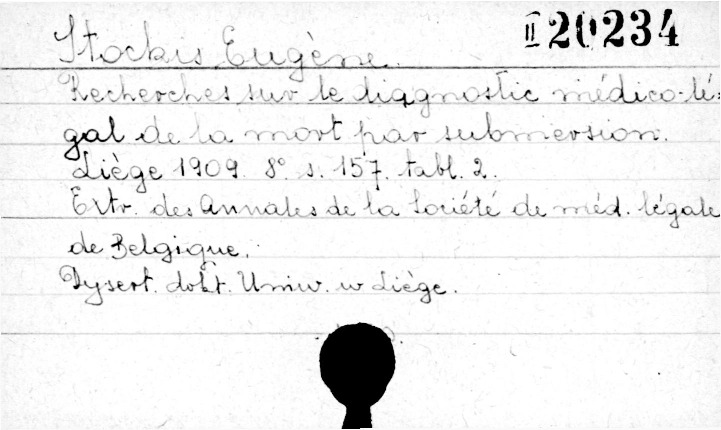 Stockis Eugène. II 20234
Recherches sur le diagnostic médico-lé=
gal de la mort par submersion.
Liège 1909. 8° s. 157. tabl. 2.
Extr. des Annales de la Société de méd. légale
de Belgique.
Dysert. dokt. Uniw. w Liège.